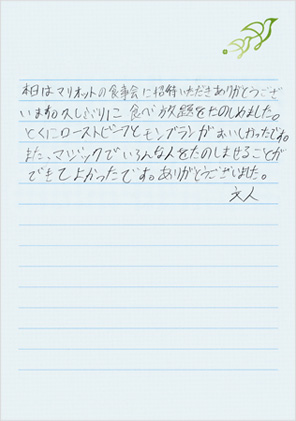 本日はマリオットの食事会に招待いただきありがとうござ
います。久しぶりに食べ放題をたのしめました。
とくにローストビーフとモンブランがおいしかったです。
また、マジックでいろんな人をたのしませることが
できてよかったです。ありがとうございました。
文人